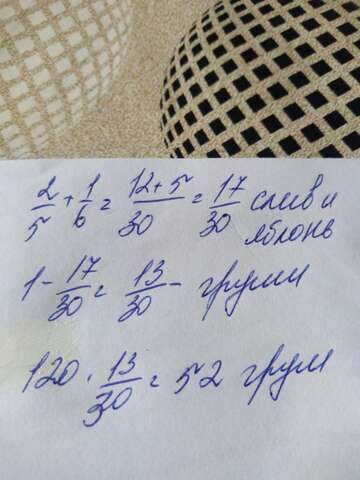 2/5 + 1/6 = 12+5/30 = 17/30 слив и
яблонь
1 - 17/30 = 13/30 - груши
120 · 13/30 = 52 груш